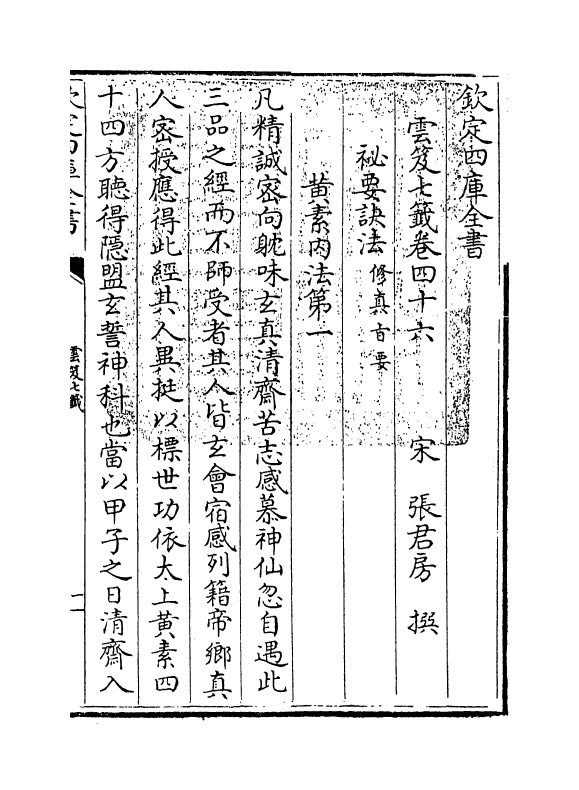 欽定四庫全書
雲笈七籤卷四十六
宋 張君房 撰
祕要訣法修真旨要
黄素内法第一
凡精誠密向躭味玄真清齋苦志感慕神仙忽自遇此
三品之經而不師受者其人皆玄會宿感列籍帝鄉真
人密授應得此經其人異挺以標世功依太上黄素四
十四方聽得隱盟玄誓神科也當以甲子之日清齋入
欽定四庫全書
雲笈七籤
一